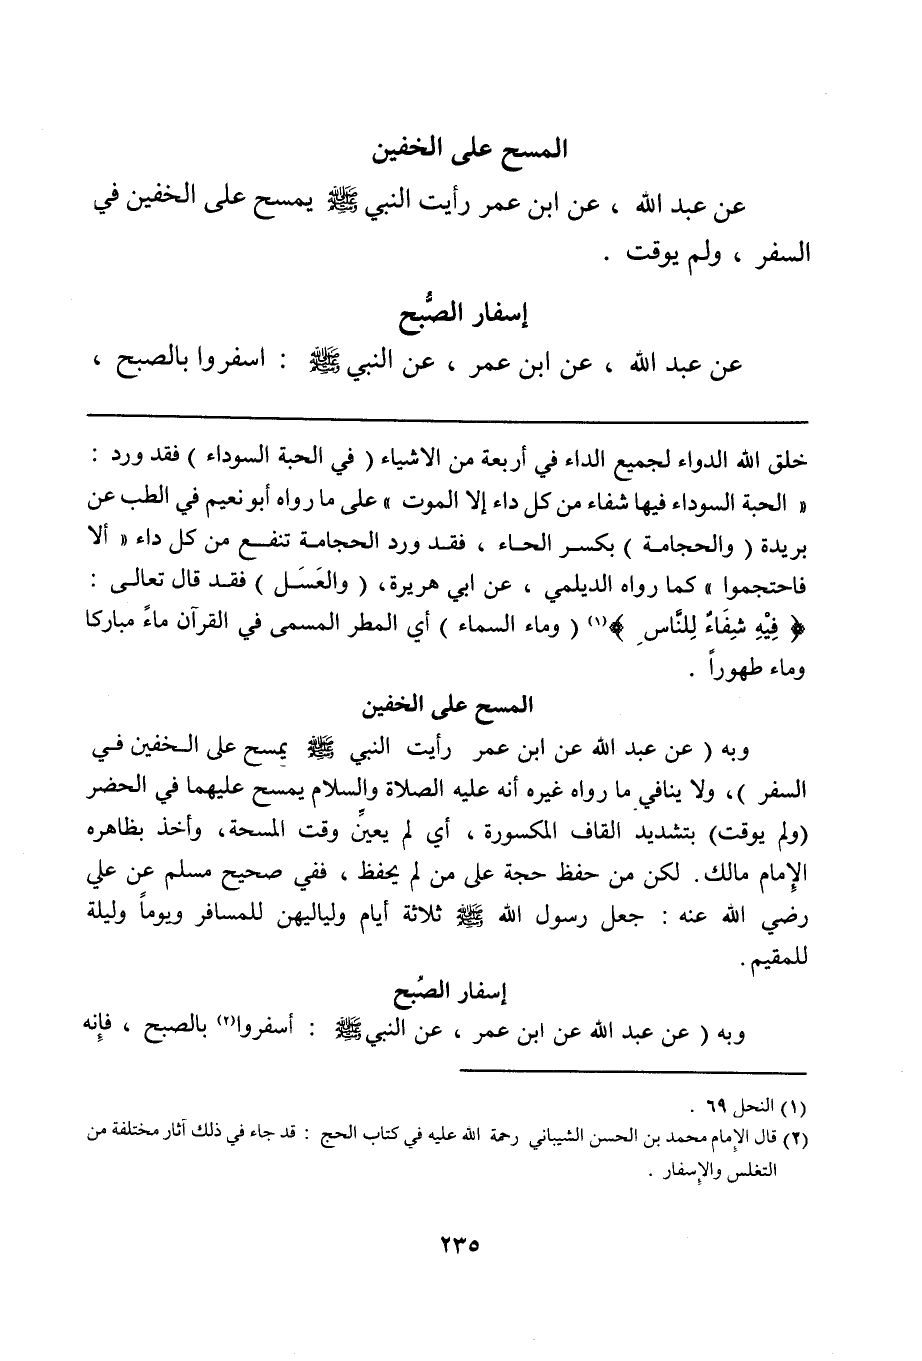 المسح على الخفين
عن عبد الله ، عن ابن عمر رأيت النبي ﷺ يمسح على الخفين في
السفر ، ولم يوقت .
إسفار الصُّبح
عن عبد الله ، عن ابن عمر ، عن النبي ﷺ : اسفروا بالصبح ،
خلق الله الدواء لجميع الداء في أربعة من الاشياء ( في الحبة السوداء ) فقد ورد :
« الحبة السوداء فيها شفاء من كل داء إلا الموت » على ما رواه أبو نعيم في الطب عن
بريدة ( والحجامة ) بكسر الحاء ، فقد ورد الحجامة تنفع من كل داء « ألا
فاحتجموا » كما رواه الديلمي ، عن ابي هريرة، ( والعَسَل ) فقد قال تعالى :
﴿ فِيْهِ شِفَاءٌ لِلنَّاسِ ﴾(١) ( وماء السماء ) أي المطر المسمى في القرآن ماءً مباركا
وماء طهوراً .
المسح على الخفين
وبه ( عن عبد الله عن ابن عمر رأيت النبي ﷺ يمسح على الخفين في
السفر )، ولا ينافي ما رواه غيره أنه عليه الصلاة والسلام يمسح عليهما في الحضر
(ولم يوقت) بتشديد القاف المكسورة ، أي لم يعينّ وقت المسحة، وأخذ بظاهره
الإمام مالك. لكن من حفظ حجة على من لم يحفظ ، ففي صحيح مسلم عن علي
رضي الله عنه : جعل رسول الله ﷺ ثلاثة أيام ولياليهن للمسافر ويوماً وليلة
للمقيم.
إسفار الصُبح
وبه ( عن عبد الله عن ابن عمر ، عن النبي ﷺ : أسفروا(٢) بالصبح ، فإنه
(١) النحل ٦٩ .
(٢) قال الإمام محمد بن الحسن الشيباني رحمة الله عليه في كتاب الحج : قد جاء في ذلك آثار مختلفة من
التغلس والإسفار .
٢٣٥